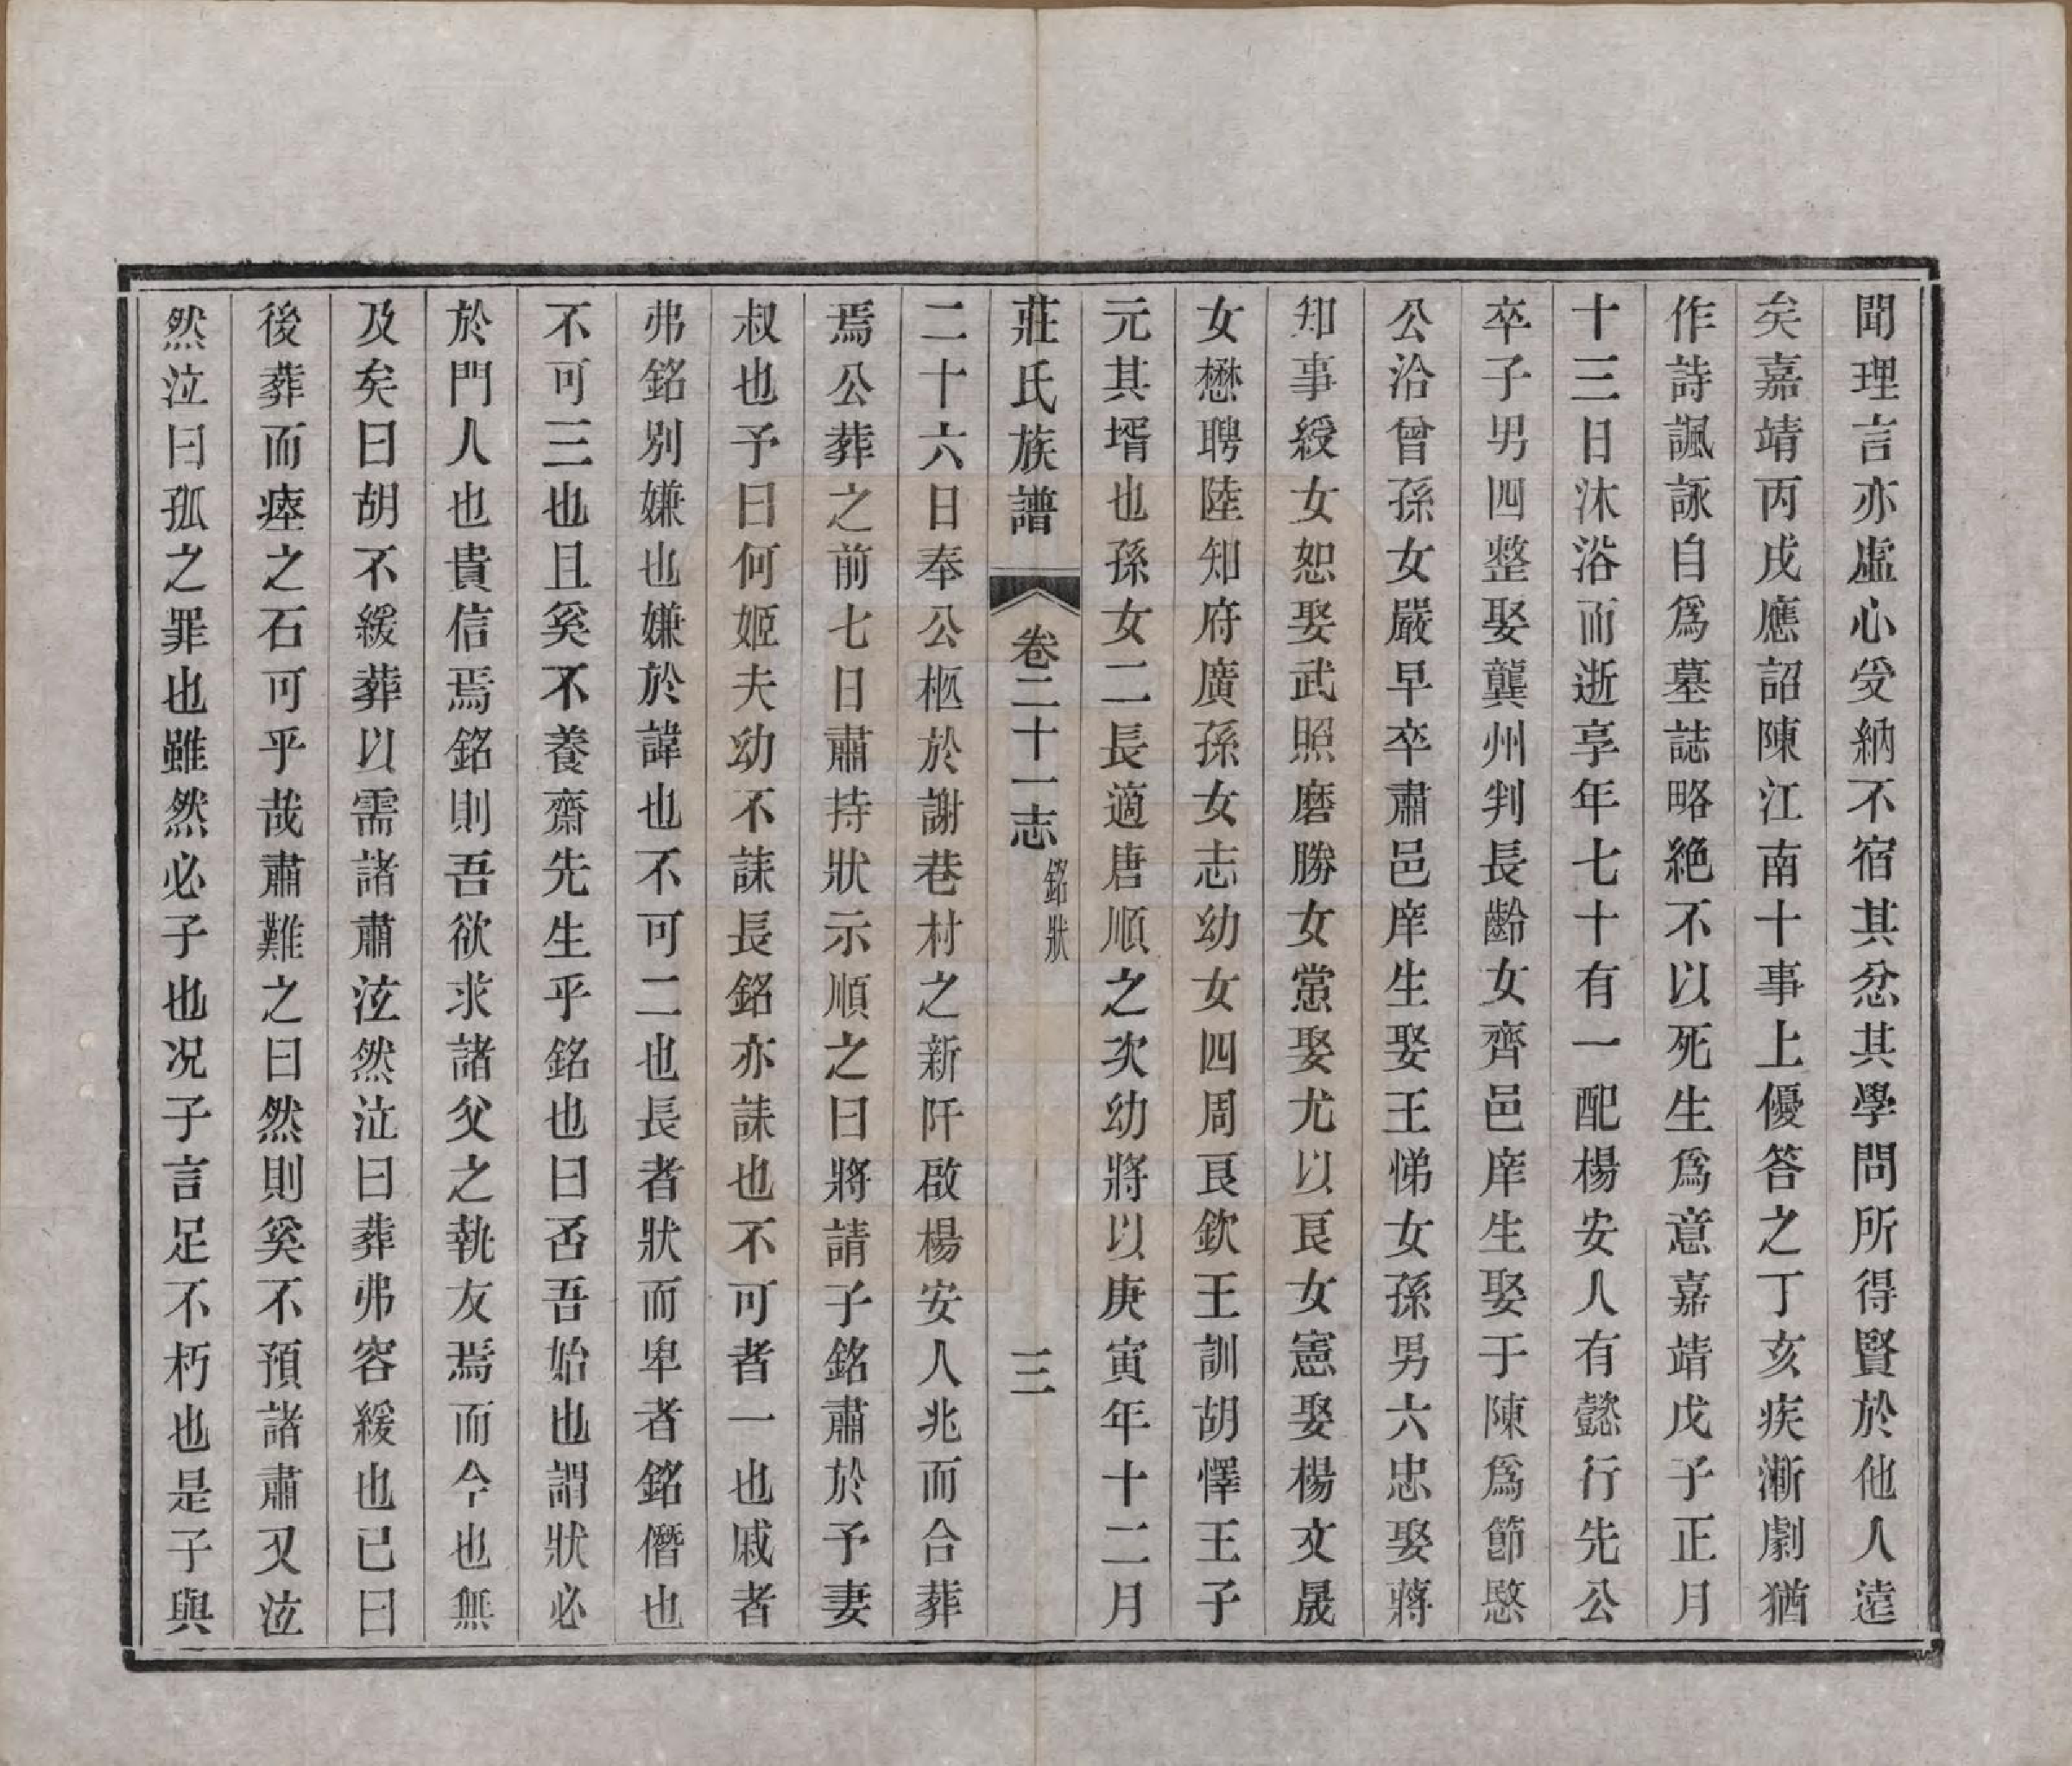 聞理言亦虛心受納不宿其忿其學問所得賢於他人遠
矣嘉靖丙戌應詔陳江南十事上優答之丁亥疾漸劇猶
作詩諷詠自爲墓誌略絶不以死生爲意嘉靖戊子正月
十三日沐浴而逝享年七十有一配楊安人有懿行先公
卒子男四整娶龔州判長齡女齊邑庠生娶于陳爲節愍
公洽曾孫女嚴早卒肅邑庠生娶王悌女孫男六忠娶蔣
知事綬女恕娶武照磨勝女憲娶尤以良女憲娶楊文晟
女懋聘陸知府廣孫女志幼女四周良欽王訓胡懌王子
元其壻也孫女二長適唐順之次幼將以庚寅年十二月
莊氏族譜 卷二十一志 銘狀 三
二十六日奉公柩於謝巷村之新阡啟楊安人兆而合葬
焉公葬之前七日肅持狀示順之曰將請子銘肅於予妻
叔也予曰何姬夫幼不誄長銘亦誄也不可者一也戚者
弗銘別嫌也嫌於諱也不可二也長者狀而卑者銘僭也
不可三也且奚不養齋先生乎銘也曰否吾始也謂狀必
於門人也貴信焉銘則吾欲求諸父之執友焉而今也無
及矣曰胡不緩葬以需諸肅泫然泣曰葬弗容緩也已曰
後葬而瘞之石可乎哉肅難之曰然則奚不預諸肅又泫
然泣曰孤之罪也雖然必子也况子言足不朽也是子與